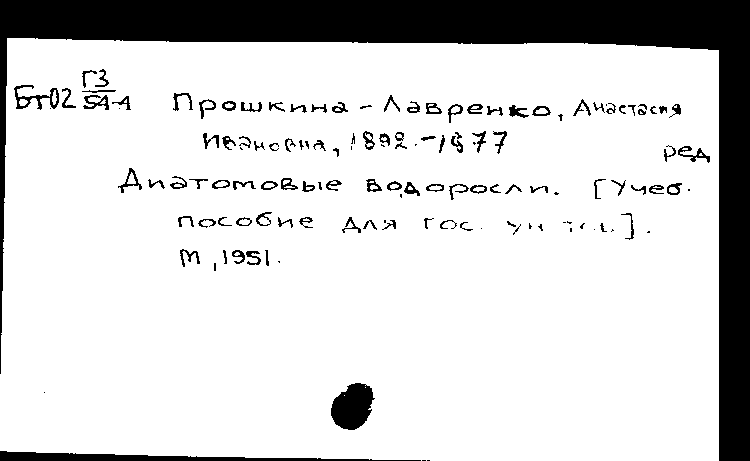 Бт02 Г3
54-1 Прошкина-Лавренко, Анастасия
Ивановна, 1892.-1977
ред
Диатомовые водоросли. [Учеб.
пособие для гос. ун
М, 1951.